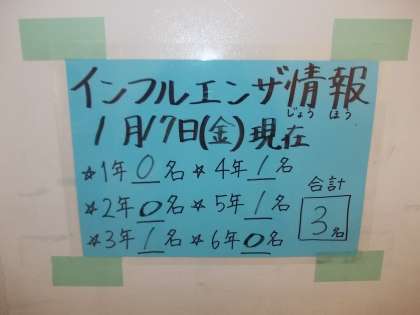 インフルエンザ情報
じょう ほう
1月17日(金)現在
☆1年 0名 ☆4年 1名
☆2年 0名 ☆5年 1名
☆3年 1名 ☆6年 0名
合計
3名